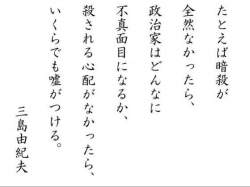 たとえば暗殺が
全然なかったら、
政治家はどんなに
不真面目になるか、
殺される心配がなかったら、
いくらでも嘘がつける。
三島由紀夫